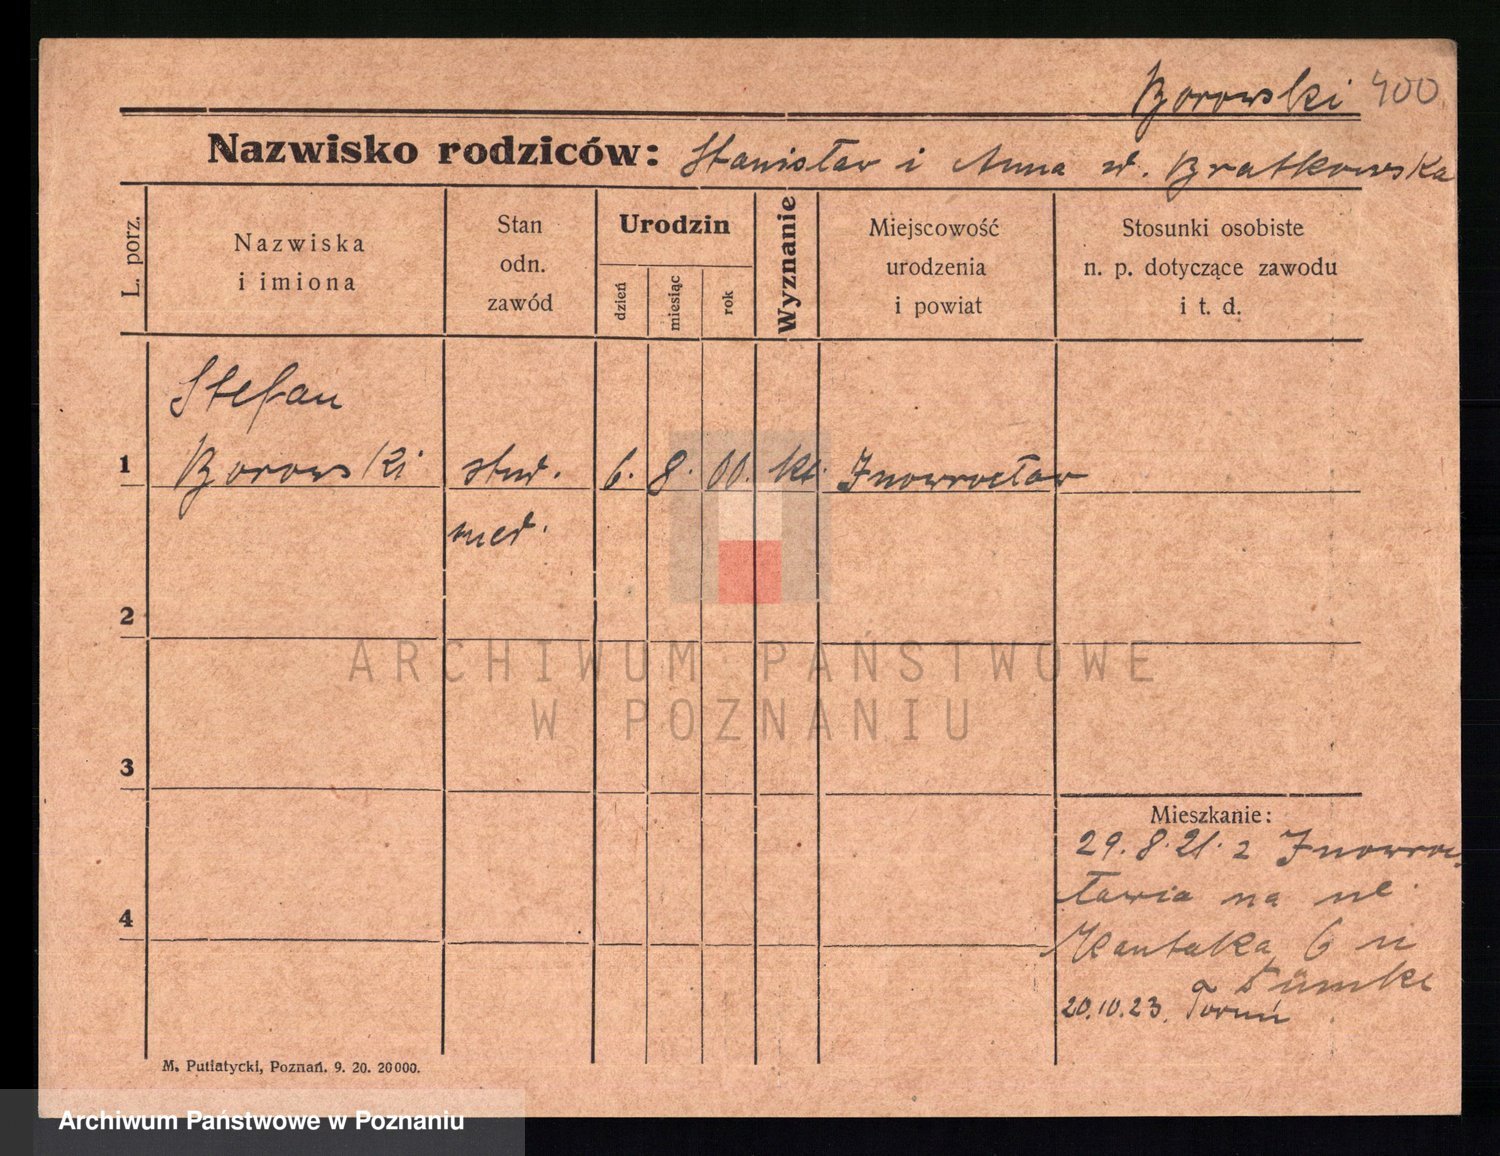 Borowski 400
Nazwisko rodziców: Stanisław i Anna d. Bratkowska
L. porz.
Nazwiska
i imiona
Stan
odn.
zawód
Urodzin
dzień
miesiąc
rok
Wyznanie
Miejscowość
urodzenia
i powiat
Stosunki osobiste
n. p. dotyczące zawodu
i t. d.
Stefan
1 Borowski stud. 6. 8. 00. kt. Inowrocław
med.
2
3
4
Mieszkanie:
29.8.21. z Inowroc
ławia na ul.
Kantaka 6 u
20.10.23. Toruń
M. Putiatycki, Poznań. 9. 20. 20000.
ARCHIWUM PAŃSTWOWE
W POZNANIU
Archiwum Państwowe w Poznaniu